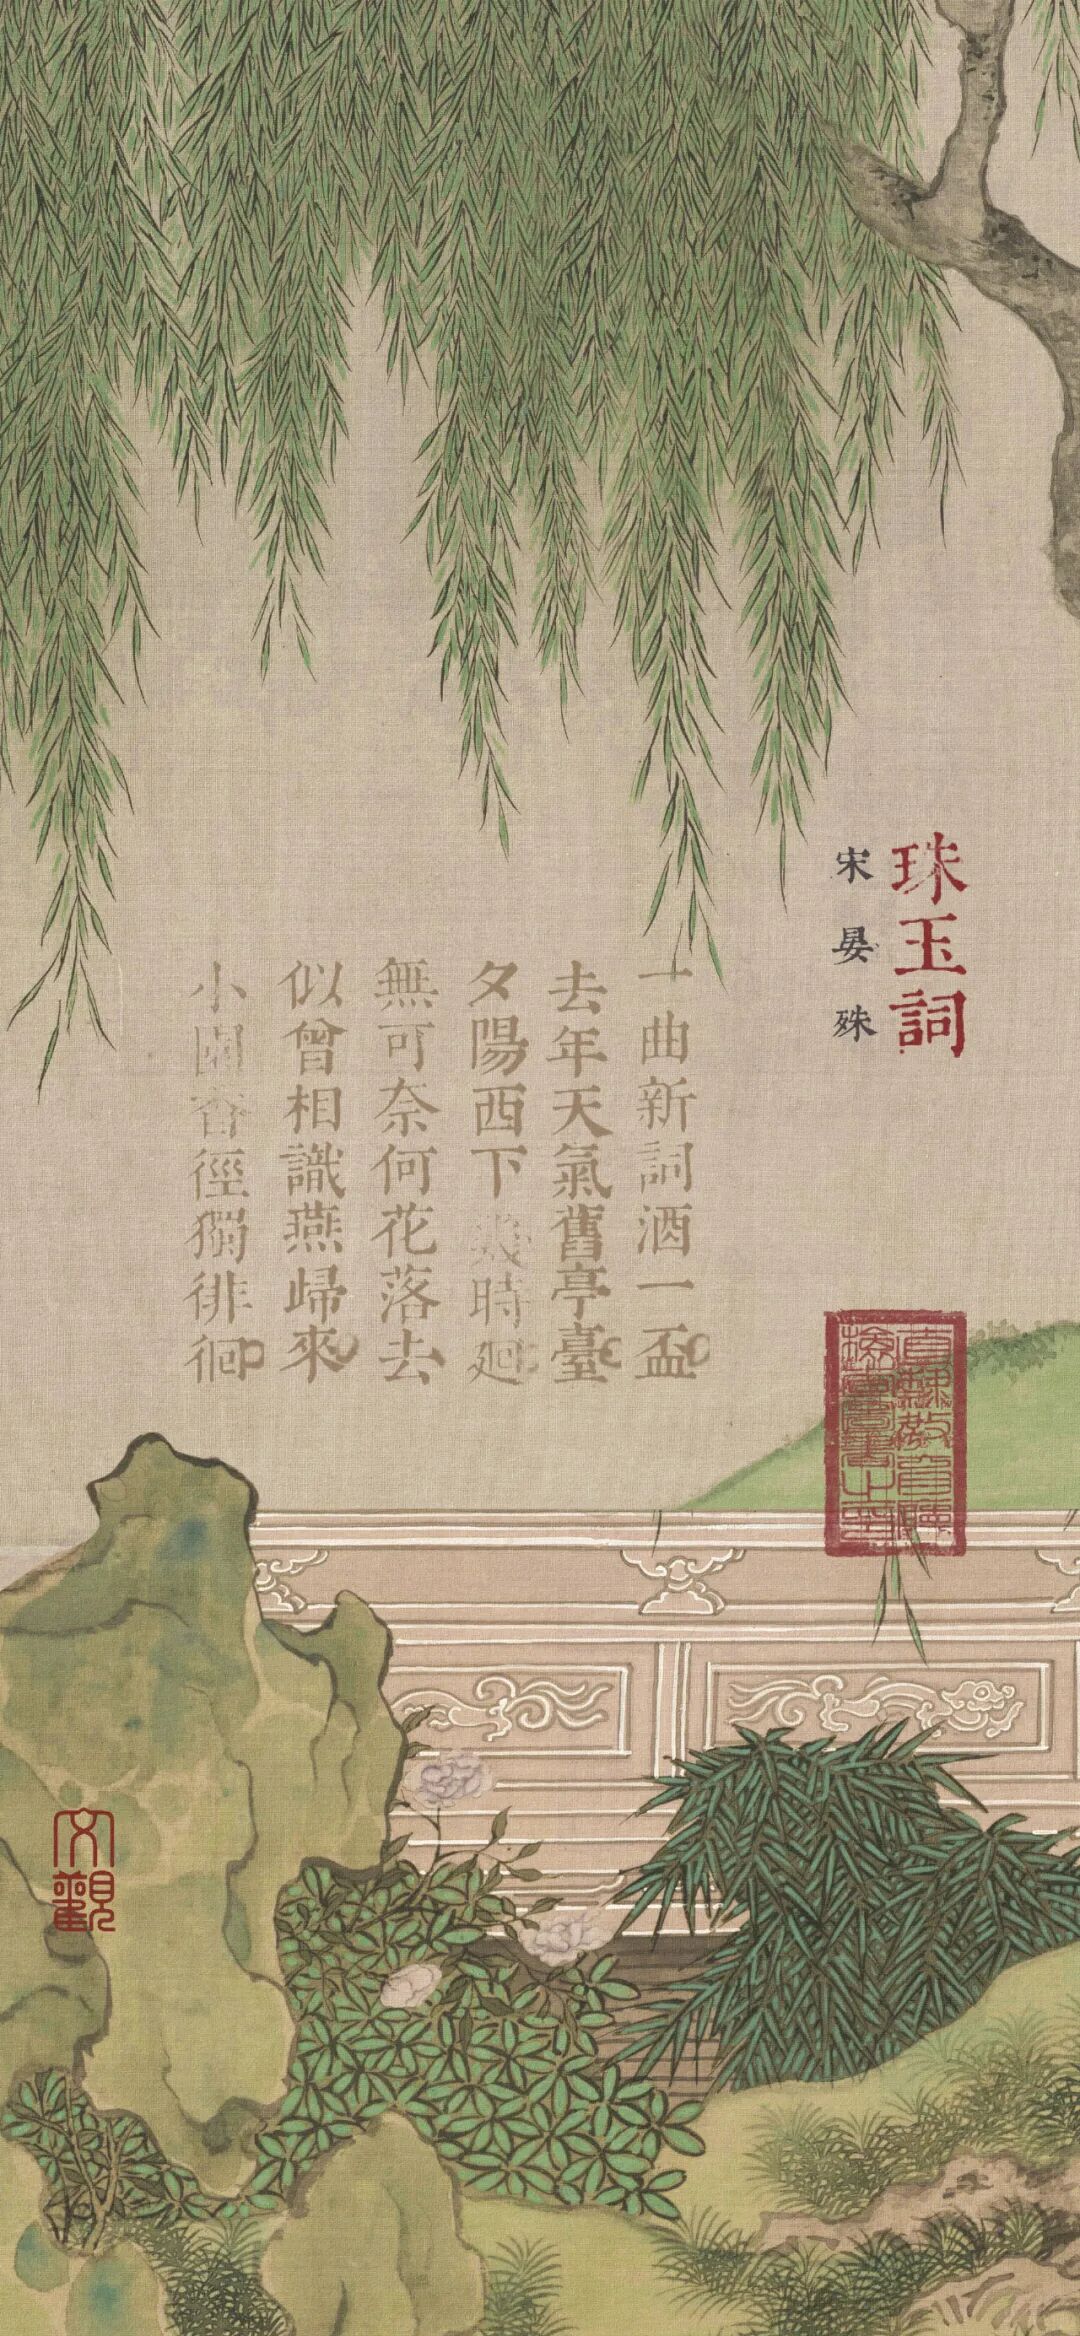 珠玉詞
宋晏殊
一曲新詞酒一盃
去年天氣舊亭臺
夕陽西下幾時廻
無可奈何花落去
似曾相識燕歸來
小園香徑獨徘徊
直隸教官聽
檢書畫之
文觀